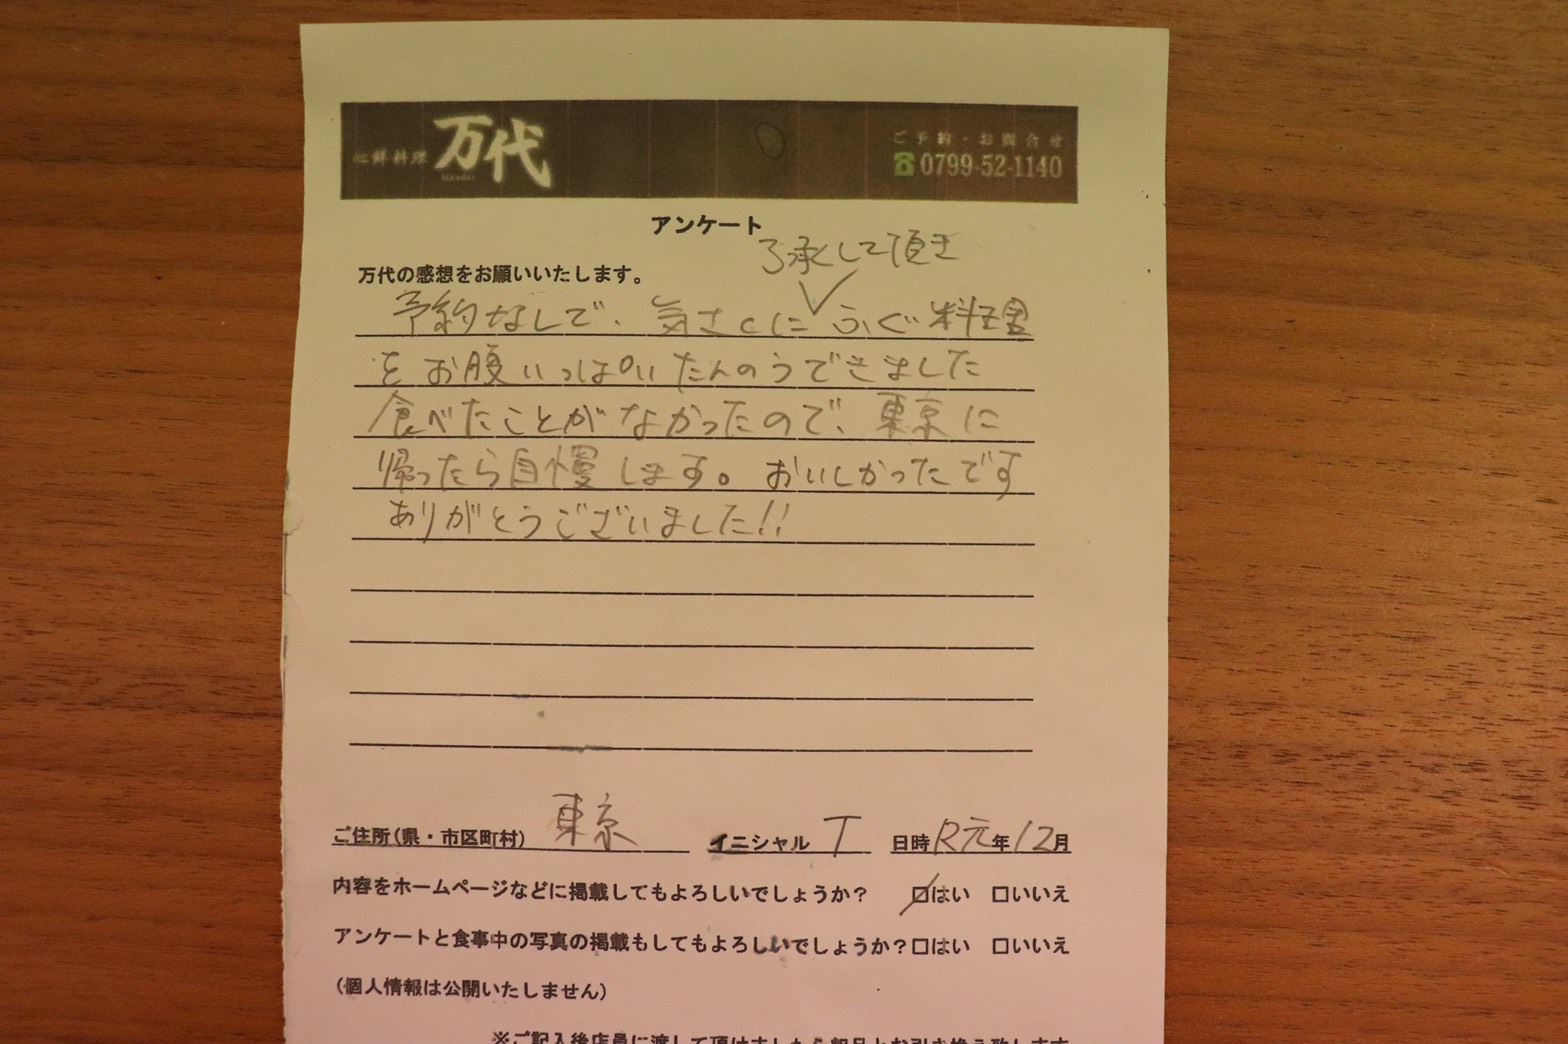 心鮮料理 万代
ご予約・お問合せ
0799-52-1140
アンケート
万代の感想をお願いいたします。
了承して頂き
予約なしで、気さくに ふぐ料理
をお腹いっぱいたんのうできました
食べたことがなかったので、東京に
帰ったら自慢します。おいしかったです
ありがとうございました!!
ご住所(県・市区町村) 東京 イニシャル T 日時R元年12月
内容をホームページなどに掲載してもよろしいでしょうか? ☑はい □いいえ
アンケートと食事中の写真の掲載もしてもよろしいでしょうか?□はい □いいえ
(個人情報は公開いたしません)
※ご記入後店員に渡して頂けましたら粗品とお引き換え致します